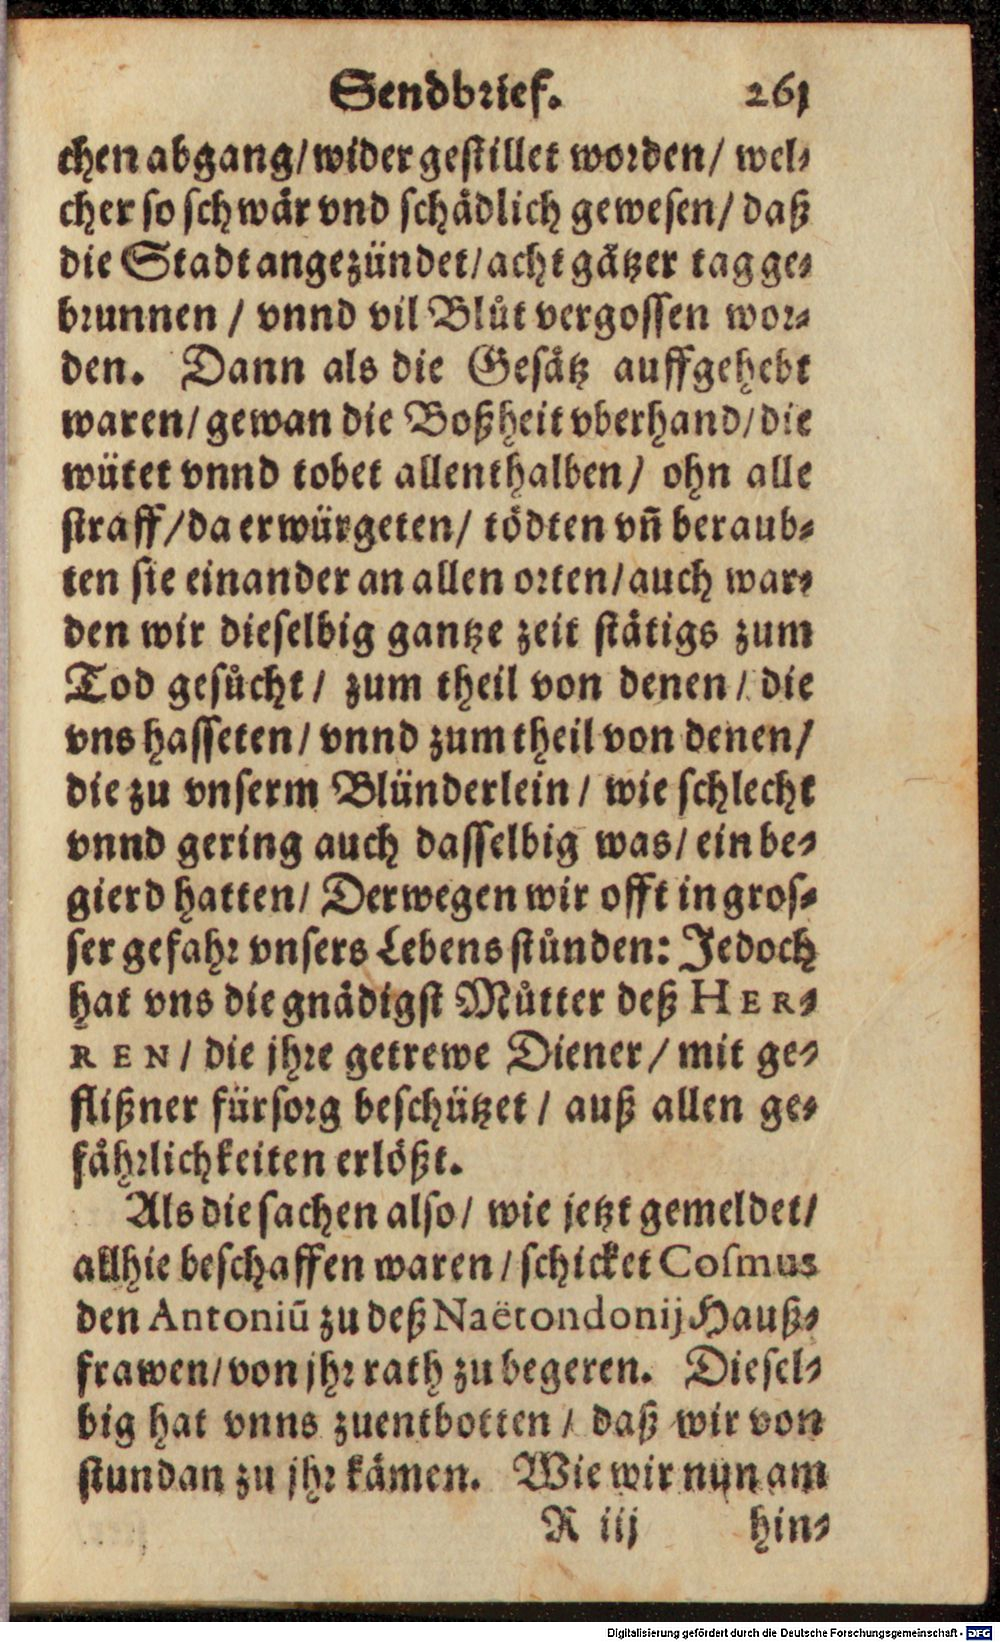 Sendbrief. 261
chen abgang/ wider gestillet worden/ wel-
cher so schwär vnd schädlich gewesen/ daß
die Stadt angezündet/ acht gätzer tag ge-
brunnen / vnnd vil Blůt vergossen wor-
den. Dann als die Gesätz auffgehebt
waren/ gewan die Boßheit vberhand/ die
wütet vnnd tobet allenthalben/ ohn alle
straff/ da erwürgeten/ tödten vñ beraub-
ten sie einander an allen orten/ auch war-
den wir dieselbig gantze zeit stätigs zum
Tod gesůcht/ zum theil von denen/ die
vns hasseten/ vnnd zum theil von denen/
die zu vnserm Blünderlein/ wie schlecht
vnnd gering auch dasselbig was/ ein be-
gierd hatten/ Derwegen wir offt in gros-
ser gefahr vnsers Lebens stůnden: Jedoch
hat vns die gnädigst Můtter deß HER-
REN/ die jhre getrewe Diener/ mit ge-
flißner fürsorg beschützet/ auß allen ge-
fährlichkeiten erlößt.
Als die sachen also/ wie jetzt gemeldet/
allhie beschaffen waren/ schicket Cosmus
den Antoniū zu deß Naëtondonij Hauß-
frawen/ von jhr rath zu begeren. Diesel-
big hat vnns zuentbotten/ daß wir von
stundan zu jhr kämen. Wie wir nun am
R iij hin-
Digitalisierung gefördert durch die Deutsche Forschungsgemeinschaft - DFG